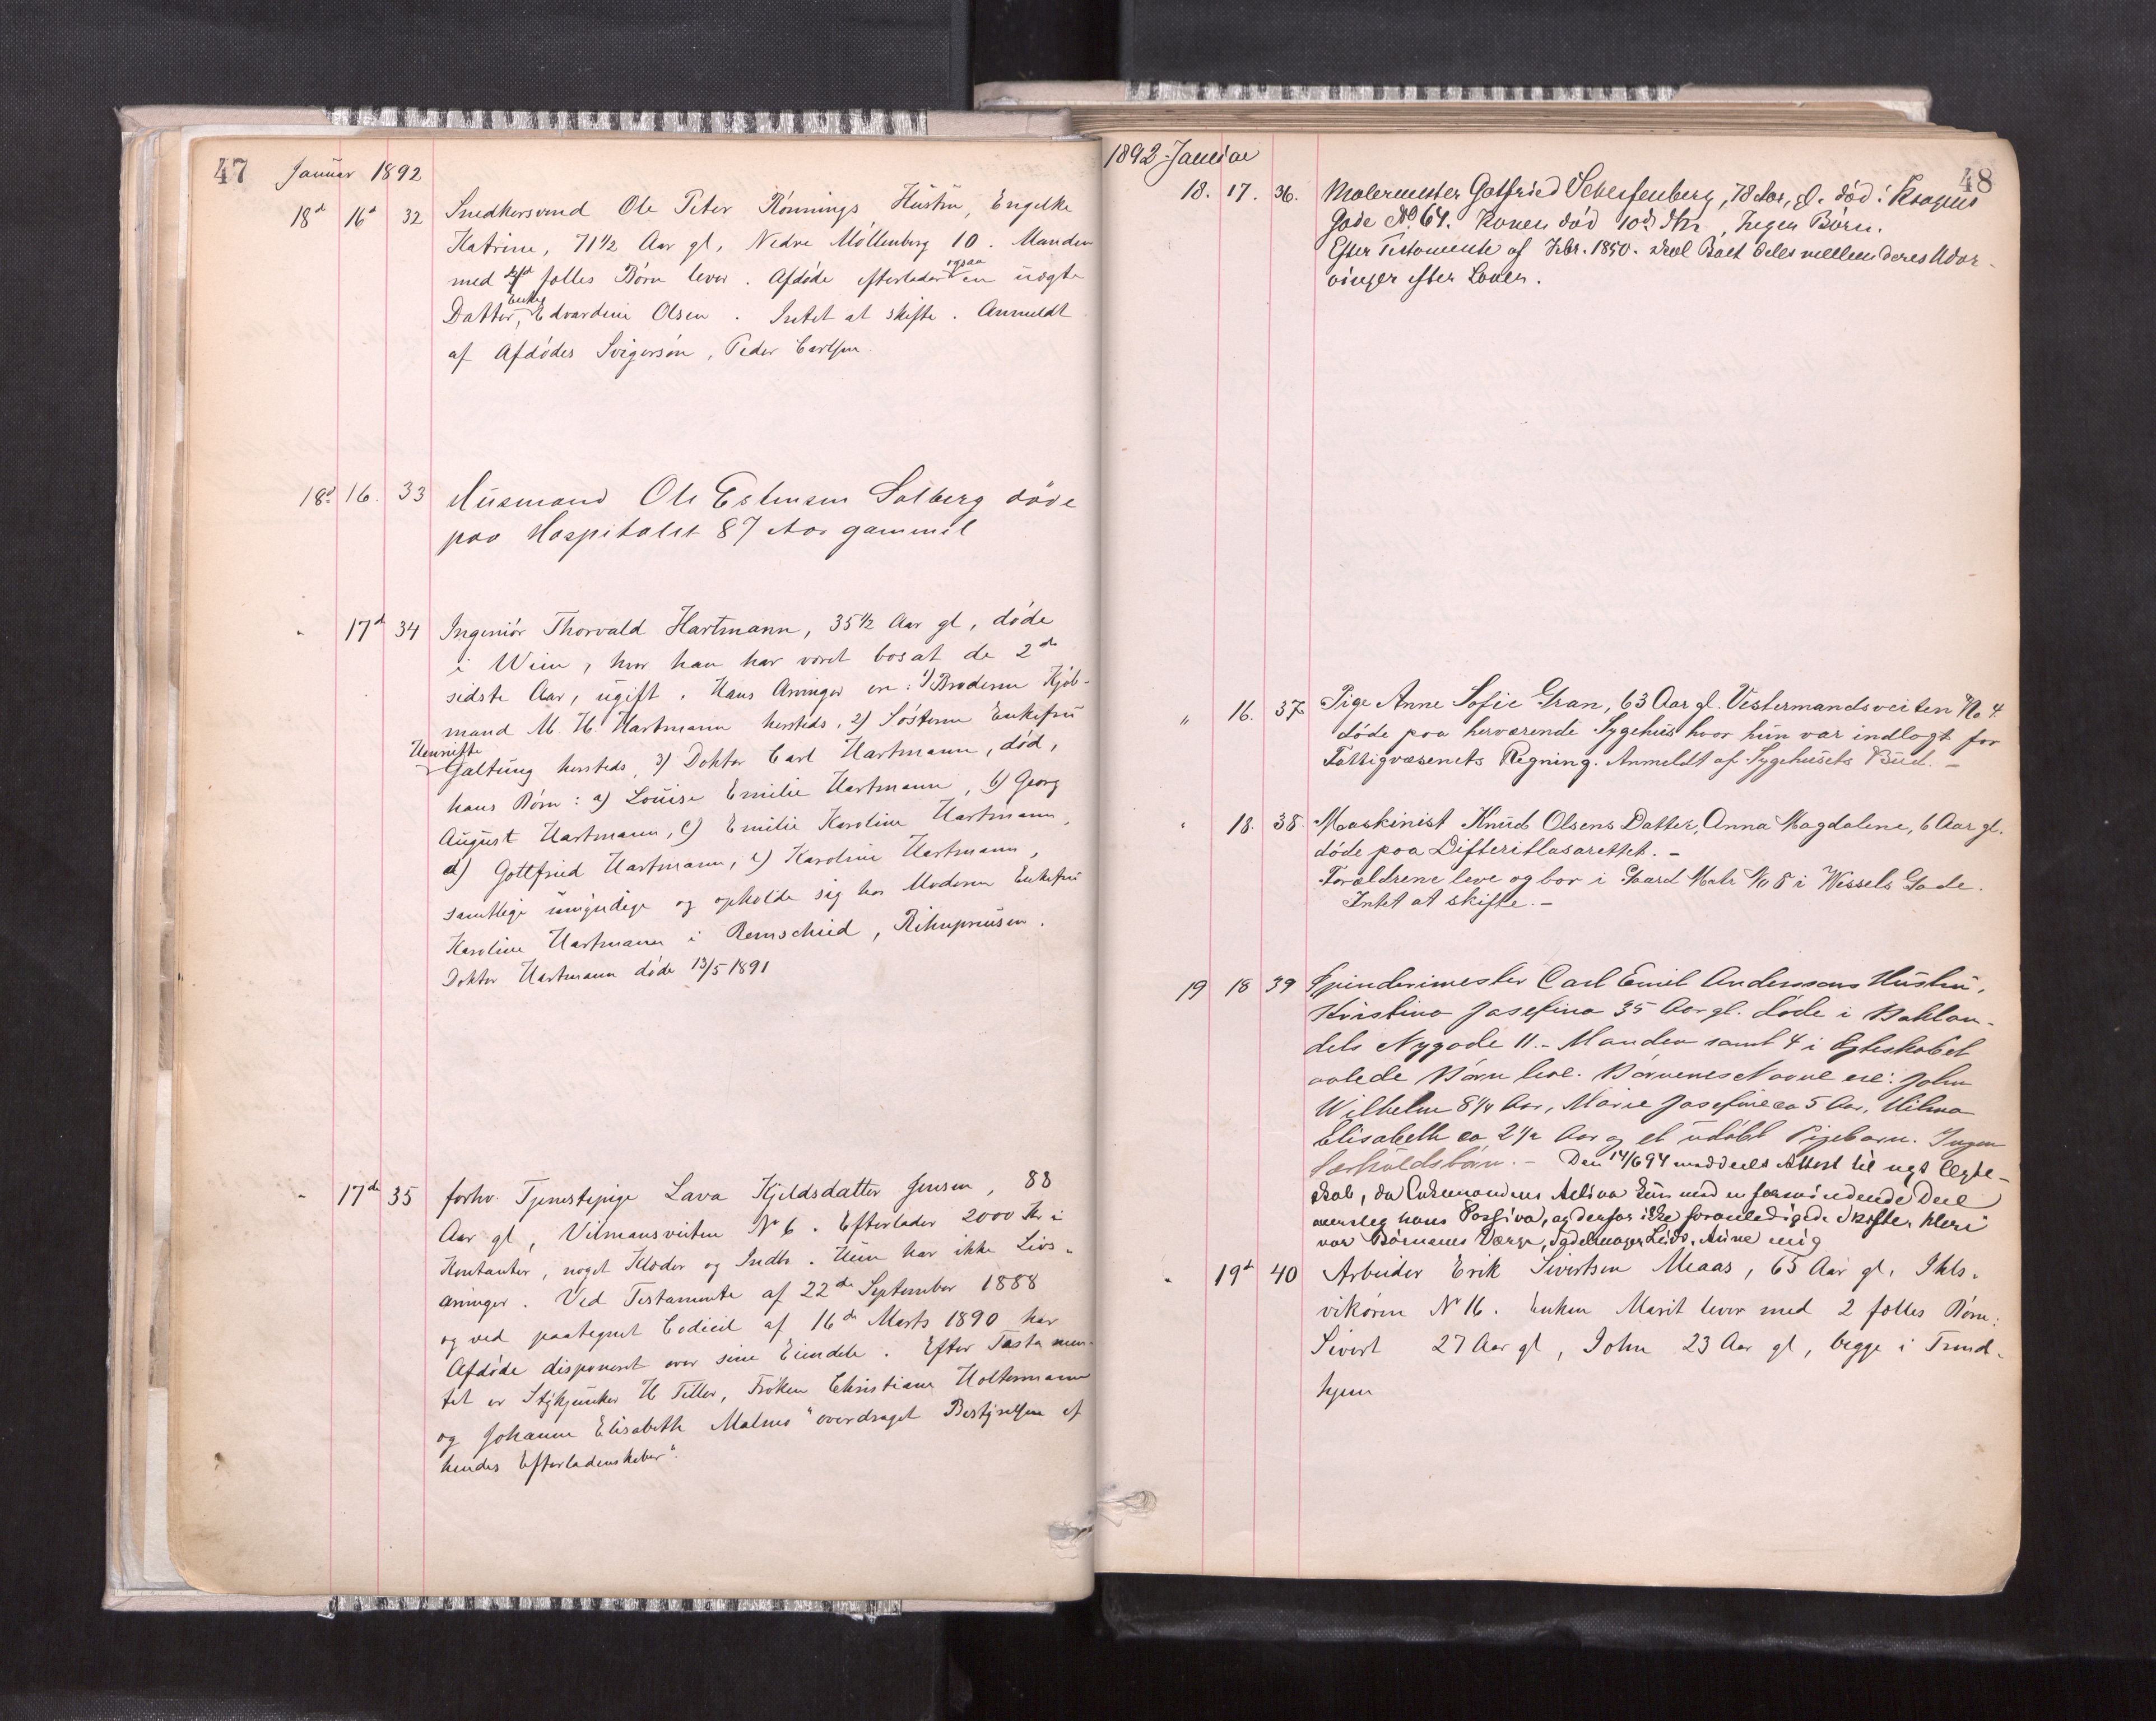 47 Januar 1892
18d 16d 32 Snedkersvend Ole Peter Rønnings Hustru, Engelke
Katrine, 71 1/2 Aar gl, Nedre Møllenberg 10. Manden
med fælles Børn lever. Afdøde efterlader ogsaa en uægte
Datter, Enke Edvardine Olsen. Intet at skifte. Anmeldt
af Afdødes Svigersøn, Peder Carlsen.
18d 16. 33 Husmand Ole Estensen Solberg døde
paa Hospitalet 87 Aar gammel
" 17d 34 Ingeniør Thorvald Hartmann, 35 1/2 Aar gl, døde
i Wien, hvor han har været bosat de 2de
sidste Aar, ugift. Hans Arvinger ere: 1) Broderen Kjøb-
mand M. H. Hartmann hersteds, 2) Søsteren Enkefru
Henriette Galtung hersteds, 3) Doktor Carl Hartmann, død,
hans Børn: a) Louise Emilie Hartmann, b) Georg
August Hartmann, c) Emilie Karoline Hartmann,
d) Gottfried Hartmann, e) Karoline Hartmann,
samtlige umyndige og opholde sig hos Moderen Enkefru
Karoline Hartmann i Remscheid, Rihnpreusen.
Doktor Hartmann døde 13/5 1891
" 17de 35 forhv. Tjenestepige Lava Kjeldsdatter Jensen, 88
Aar gl, Vilmansveiten No 6. Efterlader 2000 Kr i
Kontanter, noget Klæder og Indb. Hun har ikke Livs-
arvinger. Ved Testamente af 22de September 1888
og ved paategnet Codicil af 16de Marts 1890 har
Afdøde disponeret over sine Eiendele. Efter Testamen-
tet er Stykjunker H Tiller, Frøken Christiane Holtermann
og Johanne Elisabeth Malmo "overdraget Bestyrelsen af
hendes Efterladenskaber".
1892 Januar 48
18. 17. 36. Malermester Gotfried Scherfenberg, 78 Aar, gl. død i Kongens
Gade No 64. Konen død 10de Ingen Børn.
Efter Testamente af Febr. 1850. skal Boet deles mellem deres Udar-
vinger efter Loven.
" 16. 37. Pige Anne Sofie Gran, 63 Aar gl. Vestermandsveiten No 4.
døde paa herværende Sygehus hvor hun var indlagt for
Fattigvæsenets Regning. Anmeldt af Sygehusets Bud. -
" 18. 38. Maskinist Knud Olsens Datter, Anna Magdalene, 6 Aar gl.
døde paa Difteritlasarettet. -
Forældrene leve og bor i Gaard Matr No 8 i Wessels Gade.
Intet at skifte. -
19 18 39 Spinderimester Carl Emil Anderssons Hustru,
Kristina Josefina 35 Aar gl. døde i Baklan-
dets Nygade 11. - Manden samt 4 i Egteskabet
avlede Børn leve. Børnenes Navne ere: John
Wilhelm 8 1/4 Aar, Marie Josefine ca 5 Aar, Hilma
Elisabeth ca 2 1/2 Aar og et udøbt Pigebarn. Ingen
Særkuldsbørn. - Den 14/6 94 meddeelt Attest til nyt Ægte-
skab, da Enkemandens Activa kun med en forsvindende Deel
oversteg hans Passiva, og derfor ikke foranledigede Skifte. Heri
var Børnenes Værge, Sadelmager Ludv. Aune enig
" 19d 40 Arbeider Erik Sivertsen Meaas, 65 Aar gl, Ihls-
vikøren No 16. Enken Marit lever med 2 fælles Børn:
Sivert 27 Aar gl, John 23 Aar gl, begge i Trond-
hjem